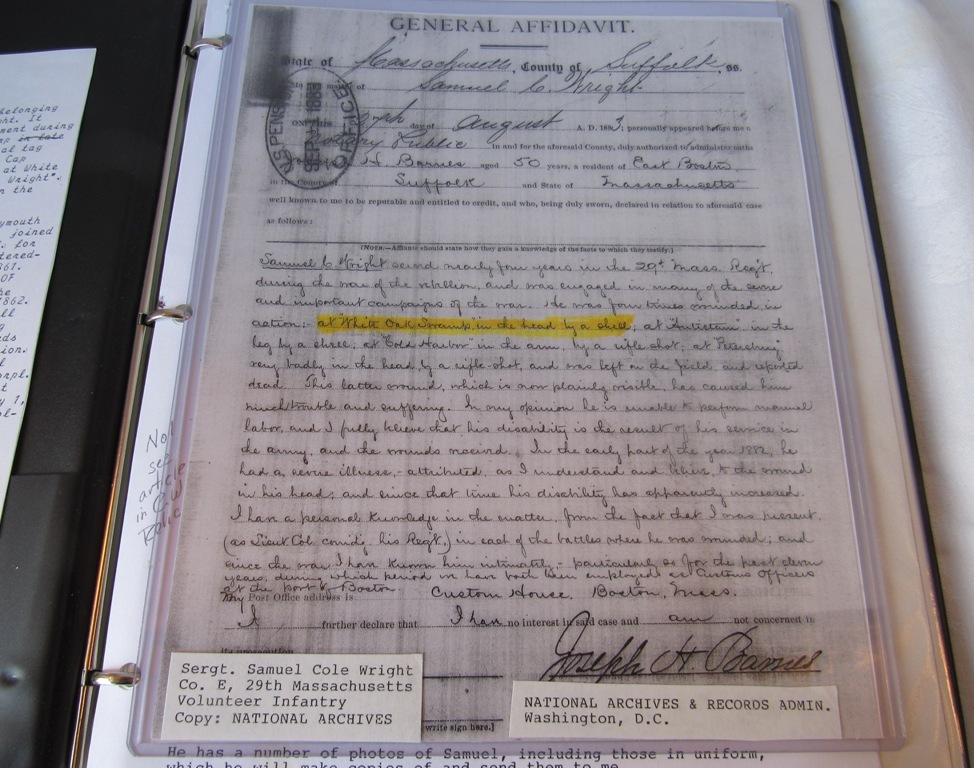 GENERAL AFFIDAVIT.
State of Massachusetts, County of Suffolk, ss.
of Samuel C. Wright.
day of August A. D. 1883; personally appeared before me a
Notary Public in and for the aforesaid County, duly authorized to administer oaths
H. Barnes aged 50 years, a resident of East Boston
in the County of Suffolk and State of Massachusetts
well known to me to be reputable and entitled to credit, and who, being duly sworn, declared in relation to aforesaid case
as follows:
[NOTE.—Affiants should state how they gain a knowledge of the facts to which they testify.]
Samuel C. Wright served nearly four years in the 29th Mass. Reg't.
during the war of the rebellion, and was engaged in many of the severe
and important campaigns of the war. He was four times wounded in
action: at "White Oak Swamp" in the head by a shell; at "Antietam" in the
leg by a shell; at "Cold Harbor" in the arm, by a rifle shot; at "Petersburg"
very badly in the head, by a rifle-shot, and was left on the field, and reported
dead. This latter wound, which is now plainly visible, has caused him
much trouble and suffering. In my opinion he is unable to perform manual
labor, and I fully believe that his disability is the result of his service in
the army, and the wounds received. In the early part of the year 1882, he
had a severe illness,- attributed, as I understand and believe, to the wound
in his head; and since that time his disability has apparently increased.
I have a personal knowledge in the matter, from the fact that I was present,
(as Lieut Col. comd'g his Reg't.) in each of the battles where he was wounded; and
since the war I have known him intimately,- particularly so for the past eleven
years, during which period we have both been employed as Customs Officers
at the port of Boston.
My Post Office address is Custom House, Boston, Mass.
I further declare that I have no interest in said case and am not concerned in
its prosecution
Joseph H. Barnes
write sign here.]
U.S. PENSION OFFICE
Sergt. Samuel Cole Wright
Co. E, 29th Massachusetts
Volunteer Infantry
Copy: NATIONAL ARCHIVES
NATIONAL ARCHIVES & RECORDS ADMIN.
Washington, D.C.
He has a number of photos of Samuel, including those in uniform,
which he will make copies of and send them to me
Not
see
article
in CW
Relic
belonging
It
ment during
in late
at tag
Cap
at White
Wright".
n the
ymouth
joined
for
tered-
861.
OF
he
1862.
ll
eds
ion.
t
orpl.
t
y 1,
ol-